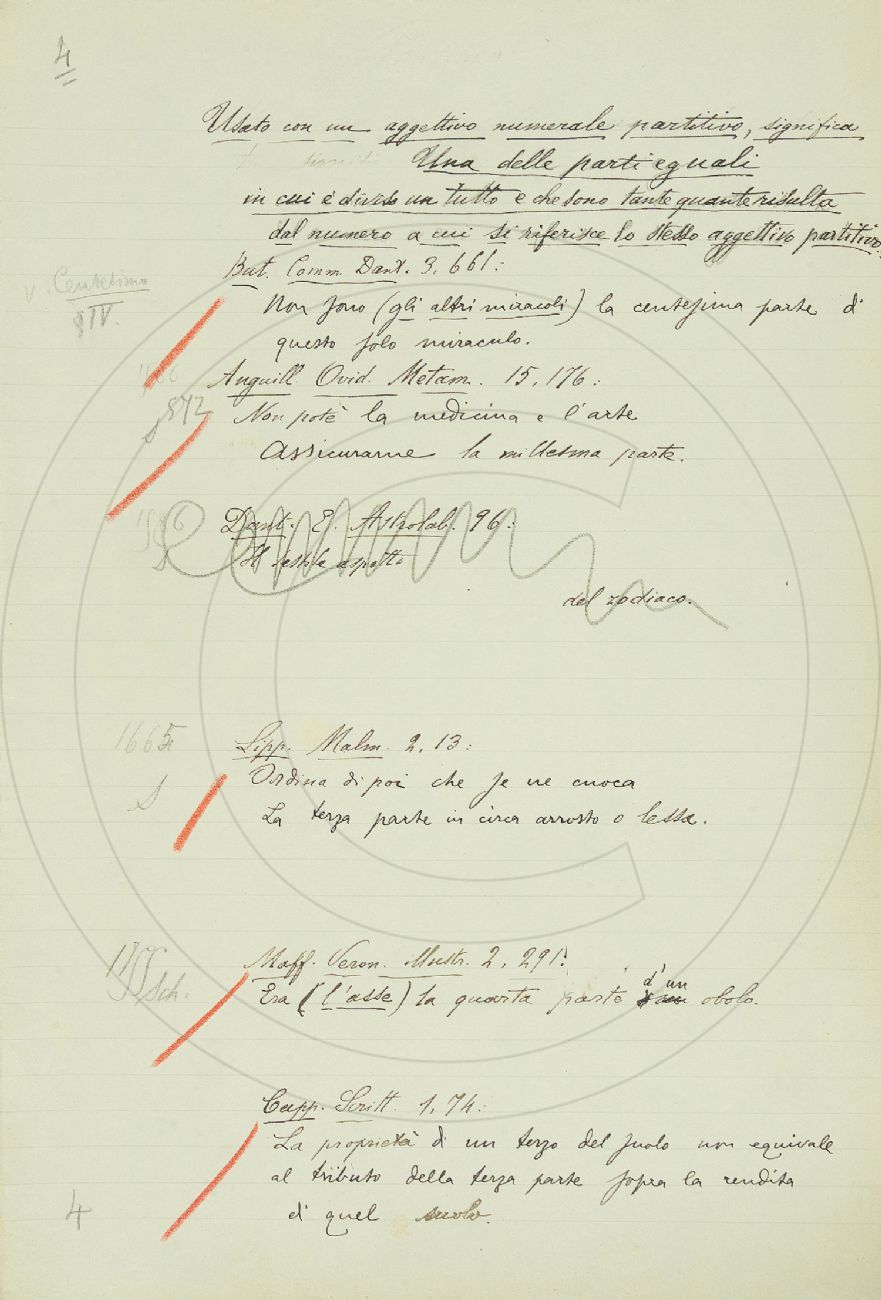 4
Usato con un aggettivo numerale partitivo, significa
Una delle parti eguali
in cui è diviso un tutto e che sono tante quante risulta
dal numero a cui si riferisce lo stesso aggettivo partitivo.
But. Comm. Dant. 3, 661:
v. Centesimo
§ IV.
Non sono (gli altri miracoli) la centesima parte di
questo solo miraculo.
Anguill. Ovid. Metam. 15, 176:
872
Non potè la medicina e l'arte
Assicurarne la millesma parte.
Dant. E. Astrolab. 96:
Il sestile aspetto
del zodiaco.
1665
Lipp. Malm. 2, 13:
Ordina di poi che se ne cuoca
La terza parte in circa arrosto o lessa.
Maff. Veron. illustr. 2, 291:
Sch.
Era (l'asse) la quarta parte d'un obolo.
Capp. Scritt. 1, 74:
La proprietà di un terzo del suolo non equivale
al tributo della terza parte sopra la rendita
di quel suolo.
4